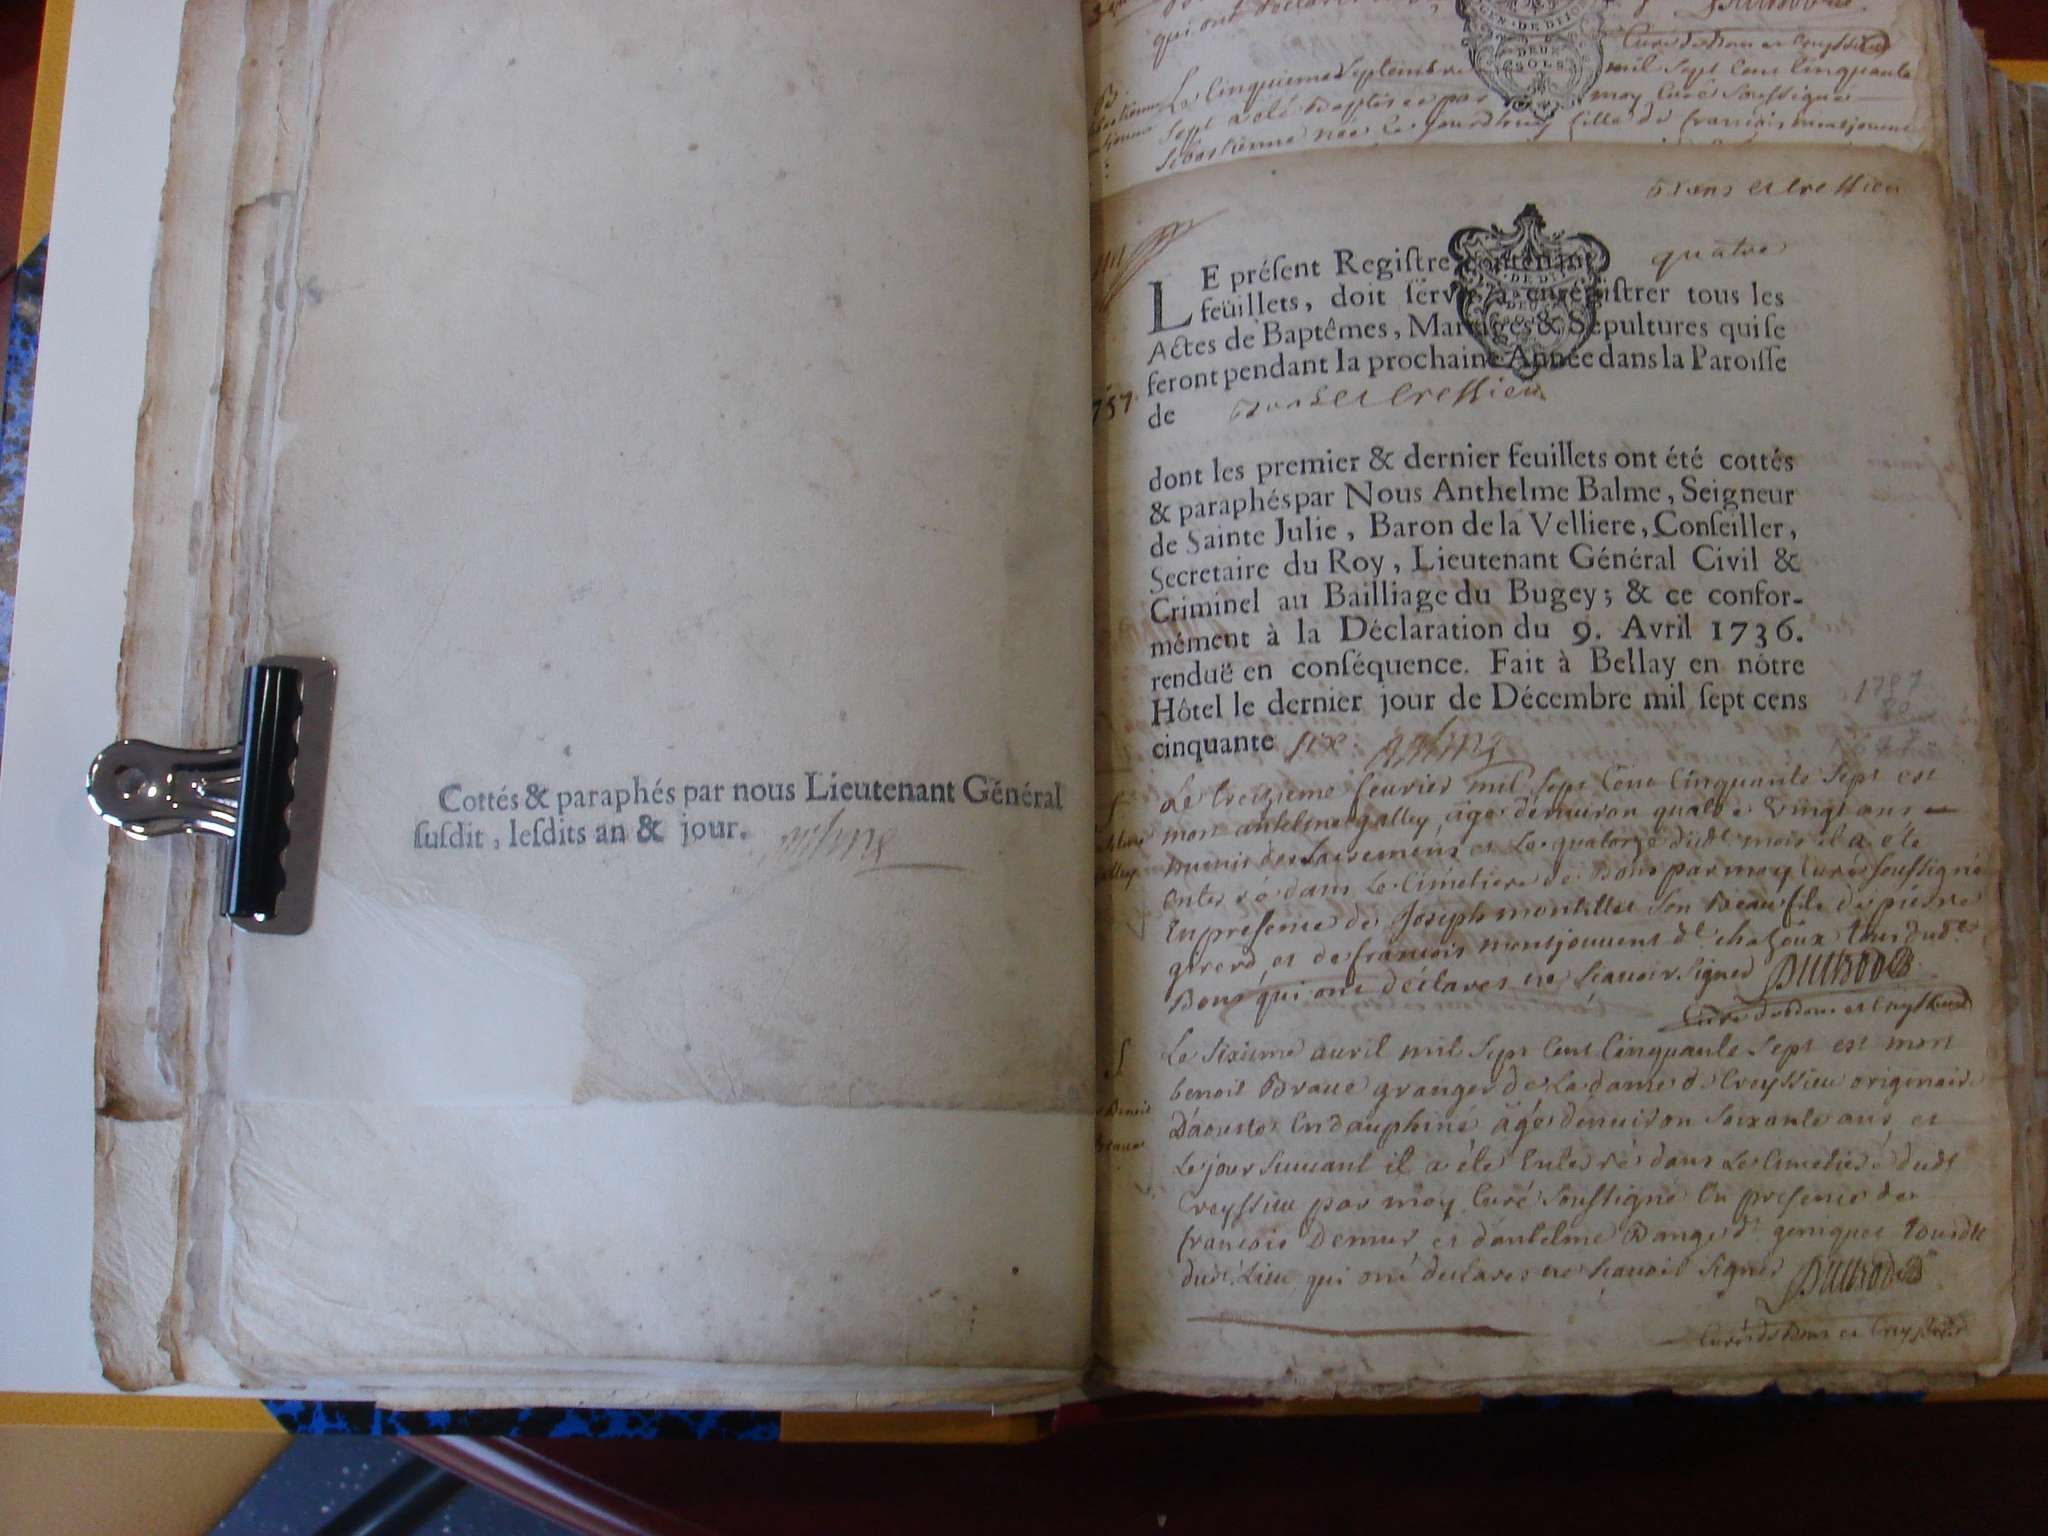 Cottés & paraphés par nous Lieutenant Général
ſuſdit, leſdits an & jour.
qui ont declarés
GEN·DE DIJON
DEUX
SOLS
Curé de Bons et Creyssieu
Le Cinquieme Septembre mil Sept Cent Cinquante
Sept a eté Baptisée par moy Curé Soussigné
Sebastienne née le jourdhuy fille de francois montjouvent
Bons et Cressieu
LE préſent Regiſtre contenant quatre
feüillets, doit ſervir à enregiſtrer tous les
Actes de Baptêmes, Mariages & Sépultures qui ſe
feront pendant la prochaine Année dans la Paroiſſe
de Bons et Cressieu
757
dont les premier & dernier feuillets ont été cottés
& paraphés par Nous Anthelme Balme, Seigneur
de Sainte Julie, Baron de la Velliere, Conſeiller,
Secretaire du Roy, Lieutenant Général Civil &
Criminel au Bailliage du Bugey; & ce confor-
mément à la Déclaration du 9. Avril 1736.
renduë en conſéquence. Fait à Bellay en nôtre
Hôtel le dernier jour de Décembre mil ſept cens
cinquante six
1787
Le treizieme fevrier mil Sept Cent Cinquante Sept est
mort antelme galley, âgé denviron quatre Vingt ans
muni des Sacremens et Le quatorze dudt mois il a eté
Enterré dans Le Cimetiere de Bons par moy Curé Soussigné
En presence de Joseph montillet Son Beaufils de pierre
girerd, et de francois montjouvent dt chatoux tous dudt
Bons qui ont déclarés ne Scavoir Signer
Curé de Bons et Creyssieu
S
Benoit
Braue
Le Sixieme avril mil Sept Cent Cinquante Sept est mort
benoit Braue granger de La dame de Creyssieu originaire
D'aouste En dauphiné âgé denviron Soixante ans, et
Le jour Suivant il a éte Enterré dans Le Cimetiere dudt
Creyssieu par moy Curé Soussigné En presence de
francois Demur et d'antelme Bange dt genique tous dt
dudt Lieu qui ont declarés ne Scavoir Signer
Curé de Bons et Creyssieu